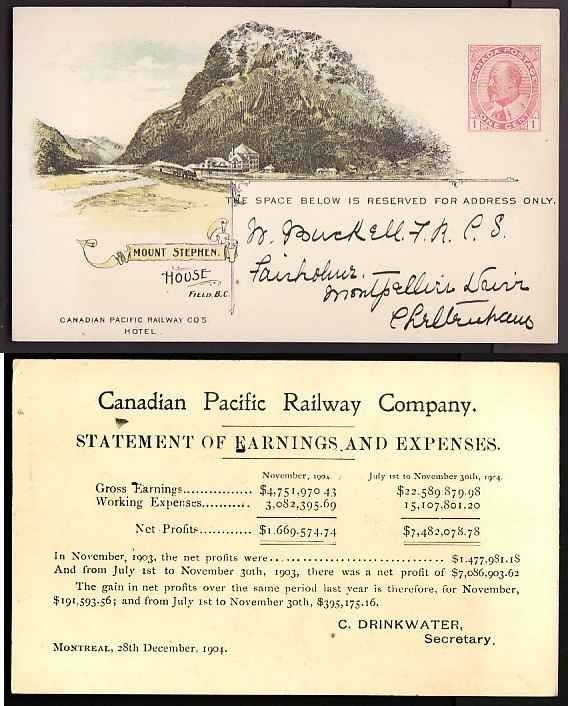 CANADA POSTAGE
1 ONE CENT 1
THE SPACE BELOW IS RESERVED FOR ADDRESS ONLY.
W. Buckell. F. R. C. S.
Fairholme.
Montpellier Drive
Cheltenham
MOUNT STEPHEN.
HOUSE
FIELD, B.C.
CANADIAN PACIFIC RAILWAY CO'S
HOTEL.
Canadian Pacific Railway Company.
STATEMENT OF EARNINGS AND EXPENSES.
November, 1904. July 1st to November 30th, 1904.
Gross Earnings............... $4,751,970 43 $22.589.879.98
Working Expenses.......... 3,082,395.69 15,107,801.20
Net Profits........... $1.669.574.74 $7,482,078.78
In November, 1903, the net profits were........................................ $1,477,981.18
And from July 1st to November 30th, 1903, there was a net profit of $7,086,903.62
The gain in net profits over the same period last year is therefore, for November,
$191,593.56; and from July 1st to November 30th, $395,175.16.
C. DRINKWATER,
Secretary.
MONTREAL, 28th December, 1904.